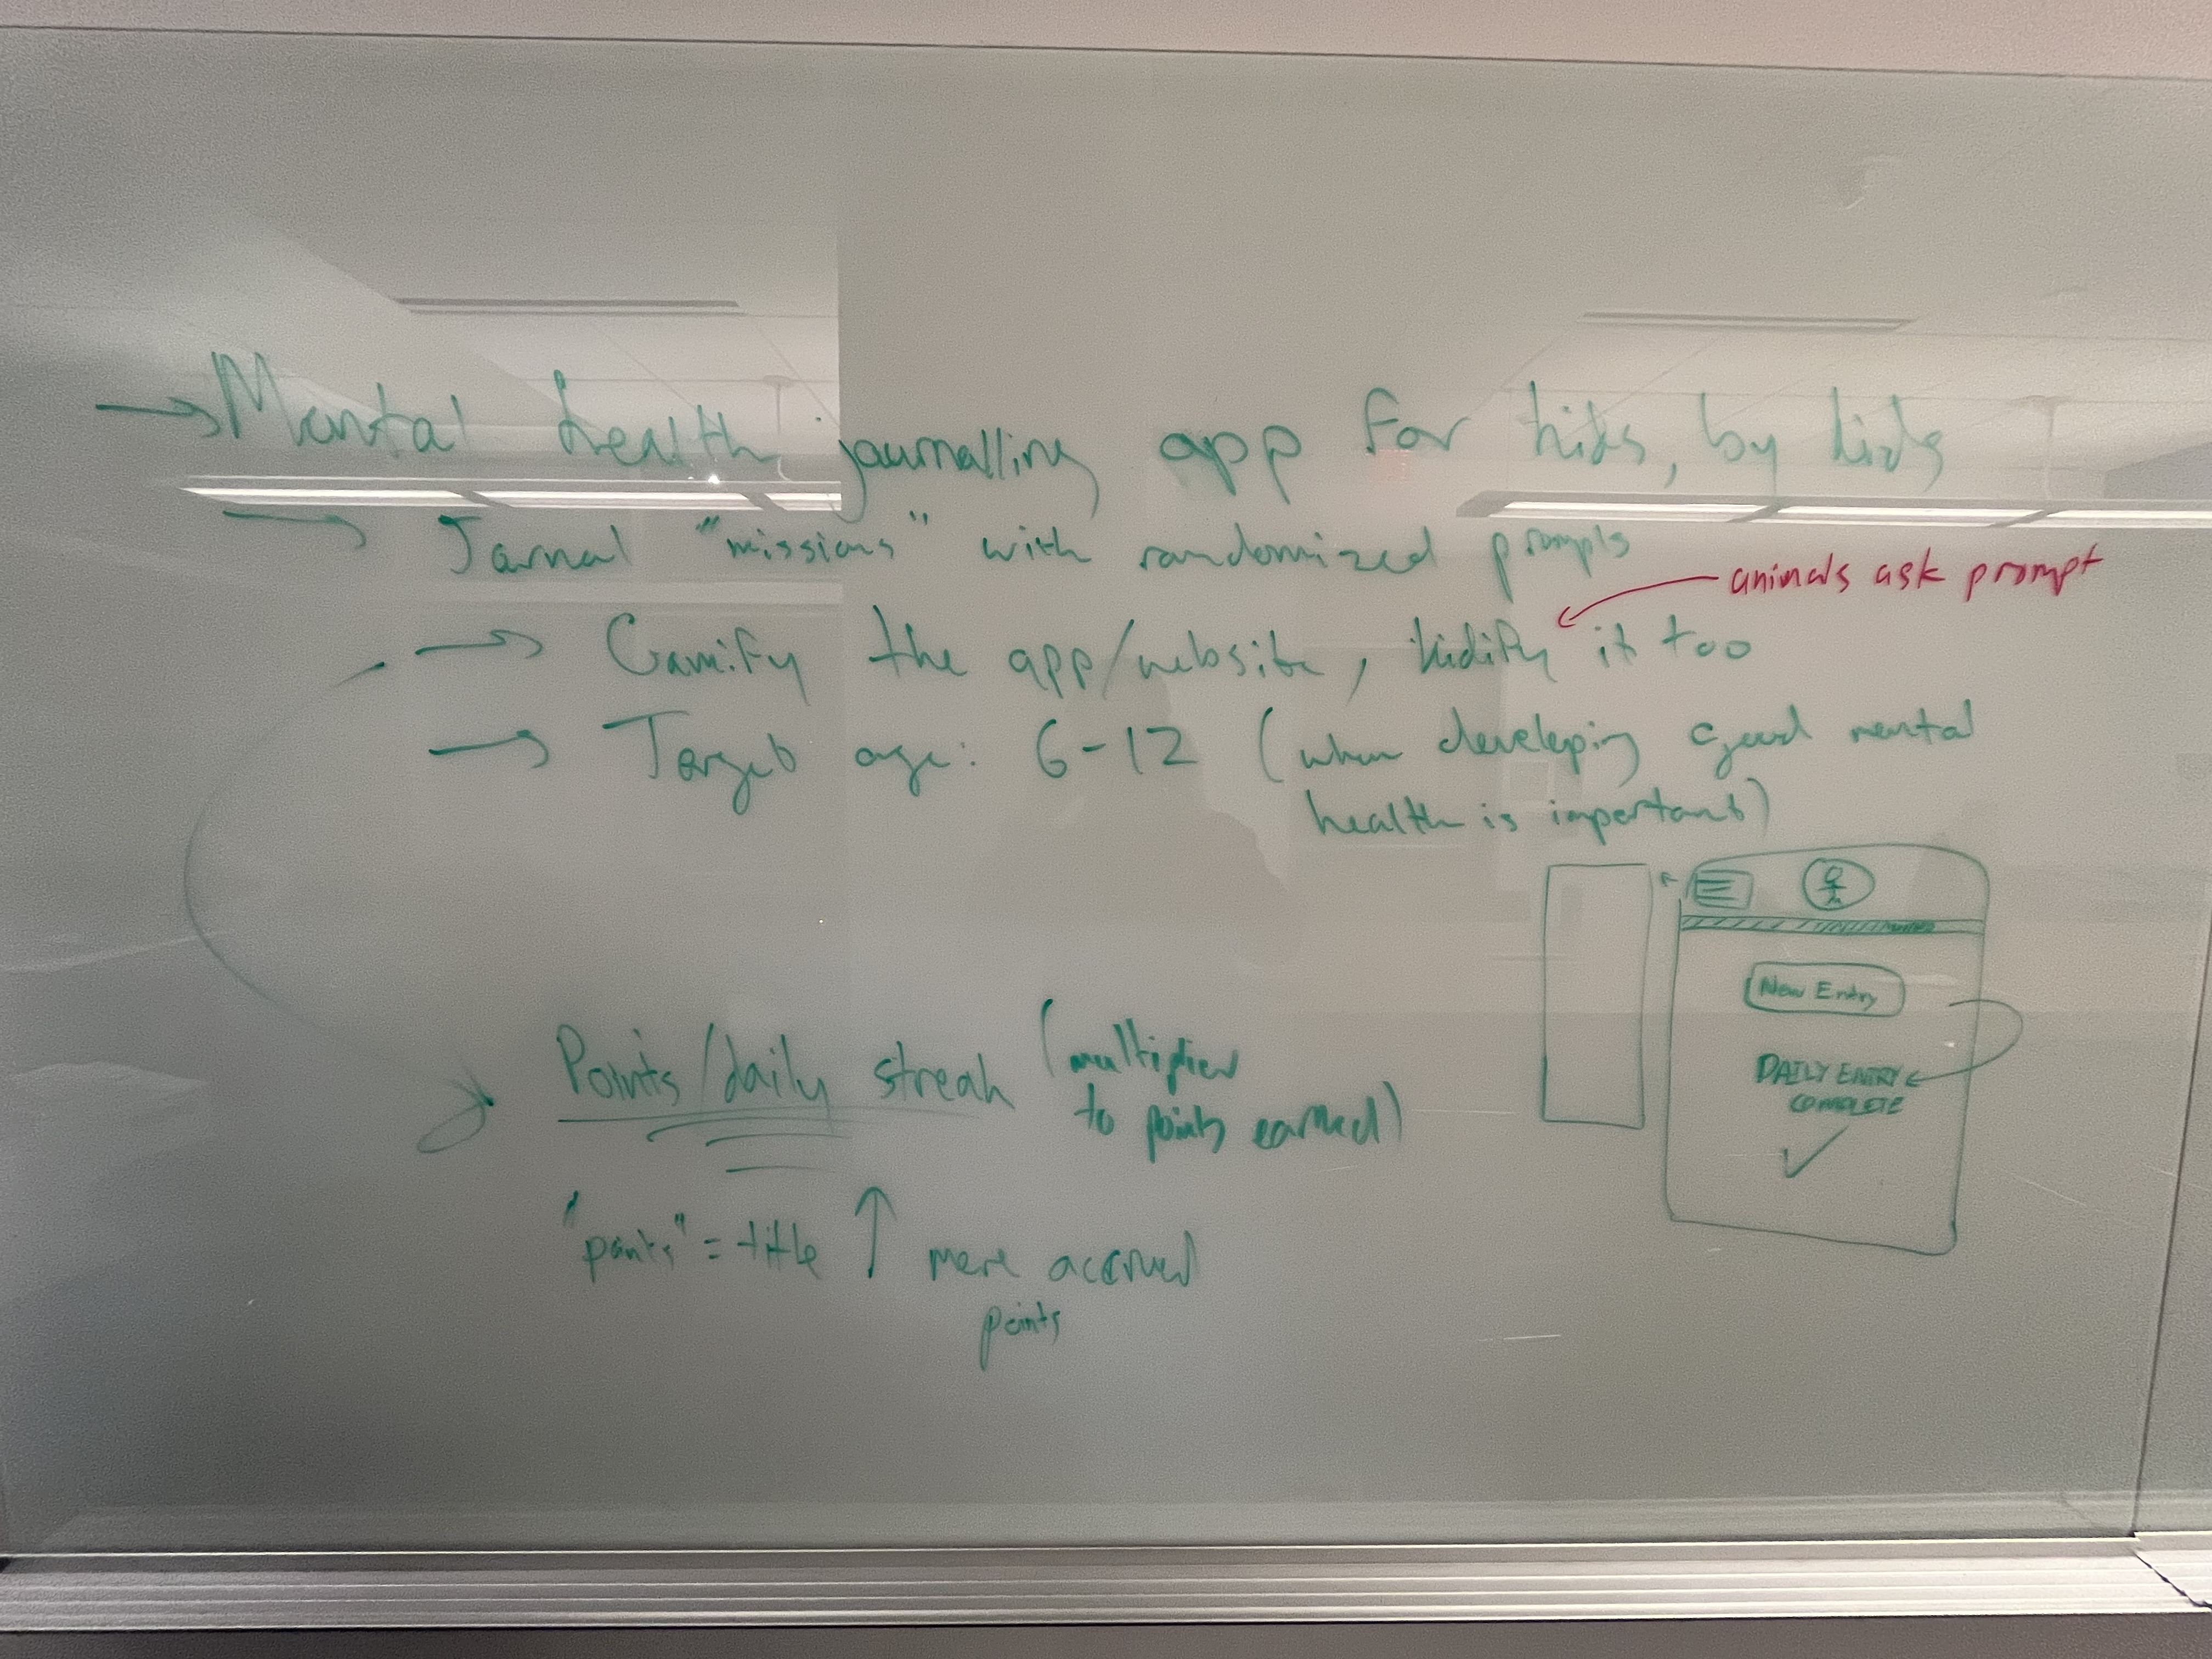 → Mental health journalling app for kids, by kids
→ Journal "missions" with randomized prompts
animals ask prompt
→ Gamify the app/website, kidify it too
→ Target age: 6-12 (when developing good mental
health is important)
New Entry
DAILY ENTRY
COMPLETE
Points/daily streak (multiplier
to points earned)
"points" = title ↑ more accrued
points